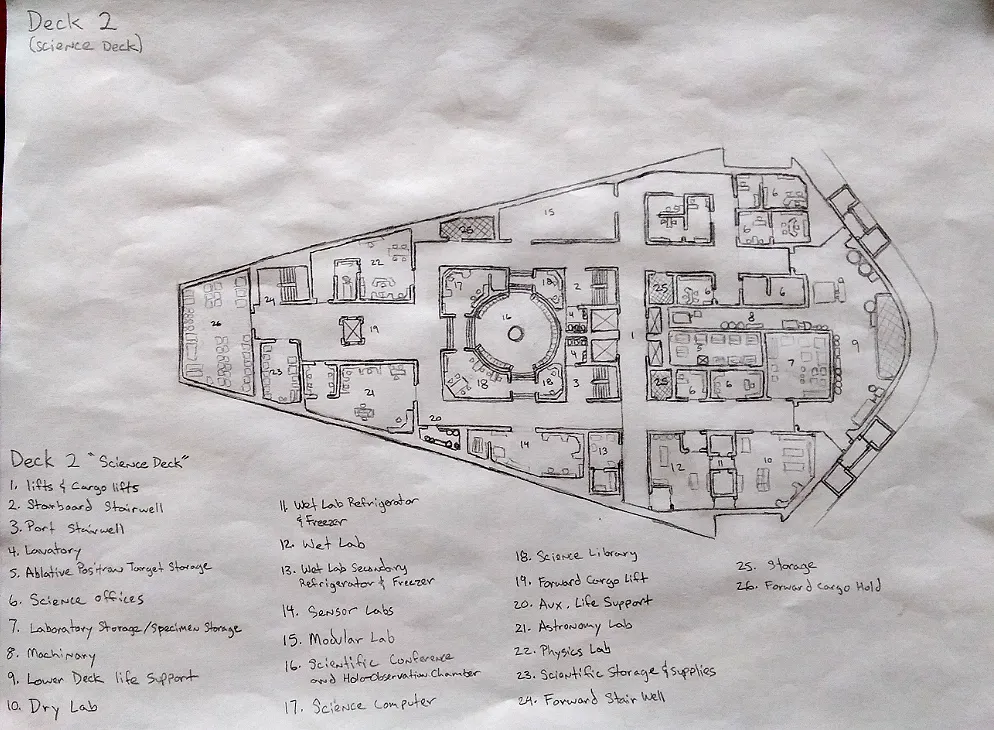 Deck 2
(Science Deck)
6
15
25
6
22
17
18
2
25
6
6
24
16
8
26
19
4
1
5
7
9
4
23
18
18
3
25
6
6
21
20
14
13
12
11
10
Deck 2 "Science Deck"
1. lifts & Cargo lifts
2. Starboard Stairwell
3. Port Stairwell
4. Lavatory
5. Ablative Positron Target Storage
6. Science offices
7. Laboratory Storage/Specimen Storage
8. Machinary
9. Lower Deck life Support
10. Dry Lab
11. Wet Lab Refrigerator
& Freezer
12. Wet Lab
13. Wet Lab Secondary
Refrigerator & Freezer
14. Sensor Labs
15. Modular Lab
16. Scientific Conference
and Holo-Observation Chamber
17. Science Computer
18. Science Library
19. Forward Cargo Lift
20. Aux. Life Support
21. Astronomy Lab
22. Physics Lab
23. Scientific Storage & Supplies
24. Forward Stair Well
25. Storage
26. Forward Cargo Hold